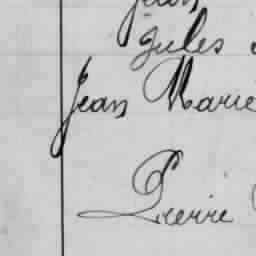 Jean
Jules
Jean Marie
Pierre